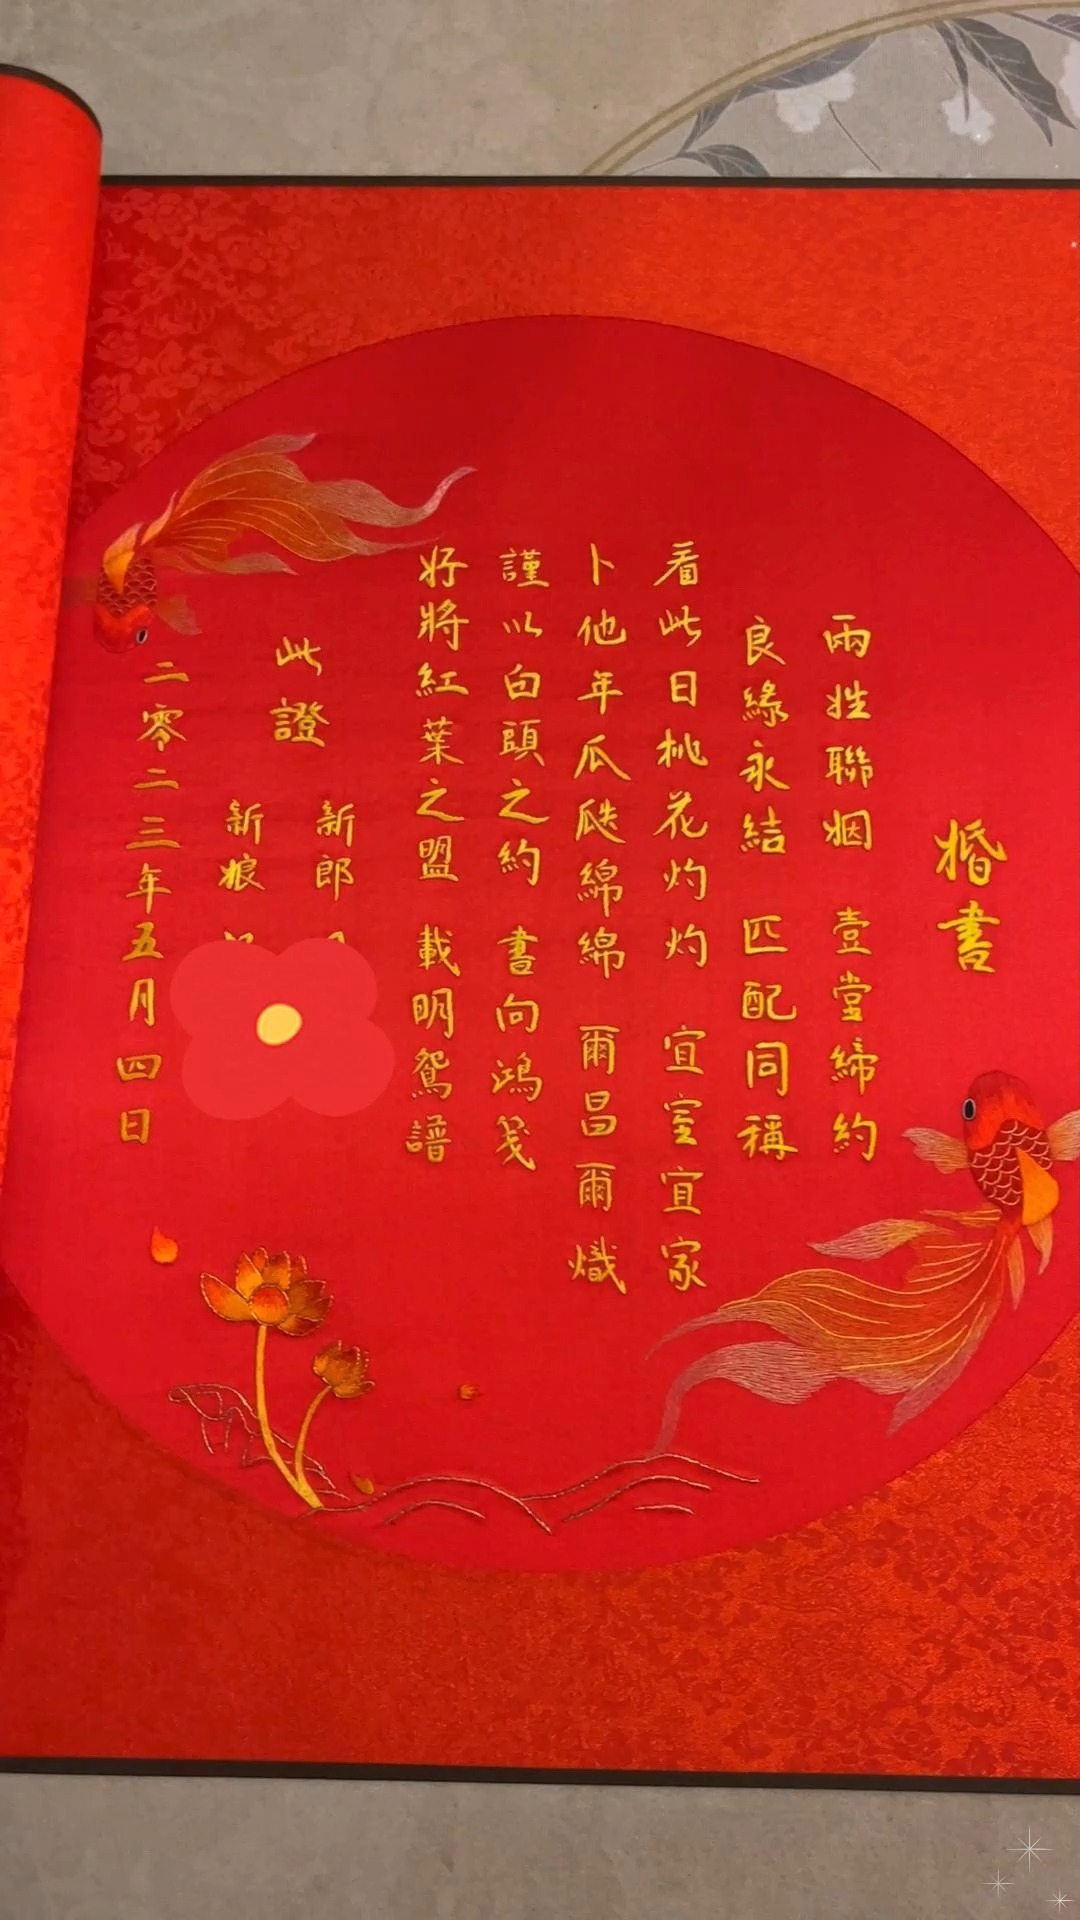 婚書
兩姓聯姻 壹堂締約
良緣永結 匹配同稱
看此日桃花灼灼 宜室宜家
卜他年瓜瓞綿綿 爾昌爾熾
謹以白頭之約 書向鴻箋
好將紅葉之盟 載明鴛譜
此證
新郎
新娘
二零二三年五月四日